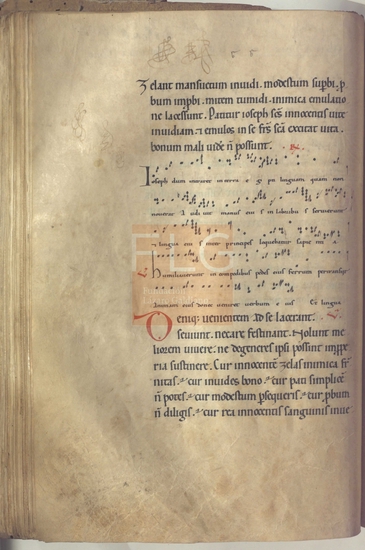 Zelant mansuetum inuidi. modestum supbi. p
bum inpbi. mitem tumidi. inimica emulatio
ne lacessunt. Patitur ioseph scs innocentis uite
inuidiam. & emulos in se frs sca excitat uita.
bonum mali uide n possunt. R
Ioseph dum intraret in terra linguam quam non
nouerat audiuit manus eius in laboribus seruierunt
& lingua eius inter principes loquebatur sapientia
V Humiliauerunt in compedibus pedes eius ferrum pertransiit
animam eius donec ueniret uerbum eius Et lingua
Deniq; uenientem ad se lacerant. L
seuiunt. necare festinant. Nolunt me
liorem uiuere. ne degeneres ipsi possint
ria sustinere. Cur innocente zelas inimica fr
nitas. & cur inuides bono. & cur pati simplice
n potes. & cur modestum psequeris. & cur pbum
n diligis. & cur rea innocentis sanguinis inue
FLG